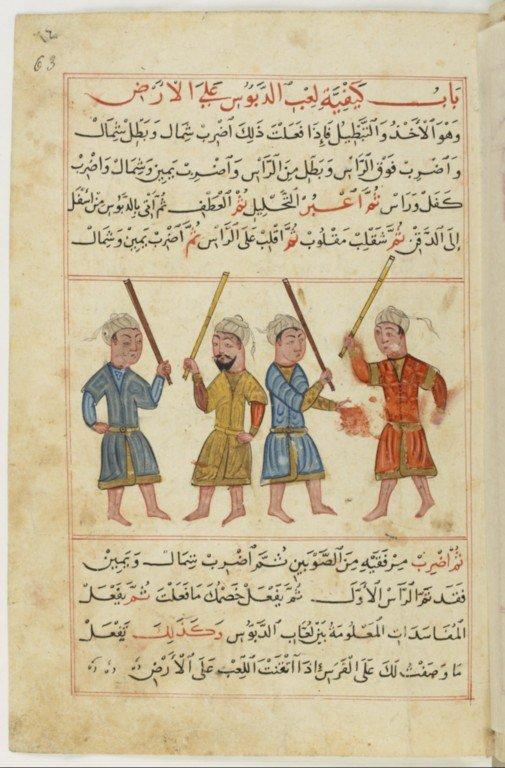 63
باب كيفية لعب الدبوس على الارض
وهو الأخذ والتبطيل فاذا فعلت ذلك اضرب شمال وبطل شمال
واضرب فوق الراس وبطل من الراس واضرب يمين وشمال واضرب
كفل وراس ثم اعبر التخليل ثم العطف ثم اتى بالدبوس من اسفل
إلى الدقن ثم شقلب مقلوب ثم اقلب على الراس ثم اضرب يمين وشمال
ثم اضرب مرفقيه من الصوبين ثم اضرب شمال ويمين
فقد تم الراس الاول ثم يفعل خصمك ما فعلت ثم يفعل
المفاسدات المعلومة بين لعاب الدبوس وكذلك يفعل
ما وصفت لك على الفرس اذا اتقنت اللعب على الأرض